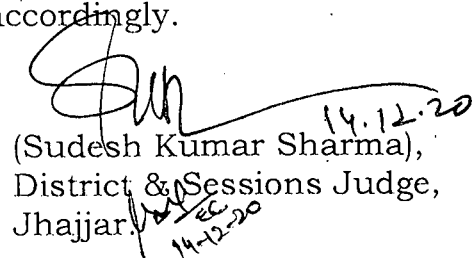 accordingly.
14.12.20
(Sudesh Kumar Sharma),
District & Sessions Judge,
Jhajjar.
EC
14-12-20